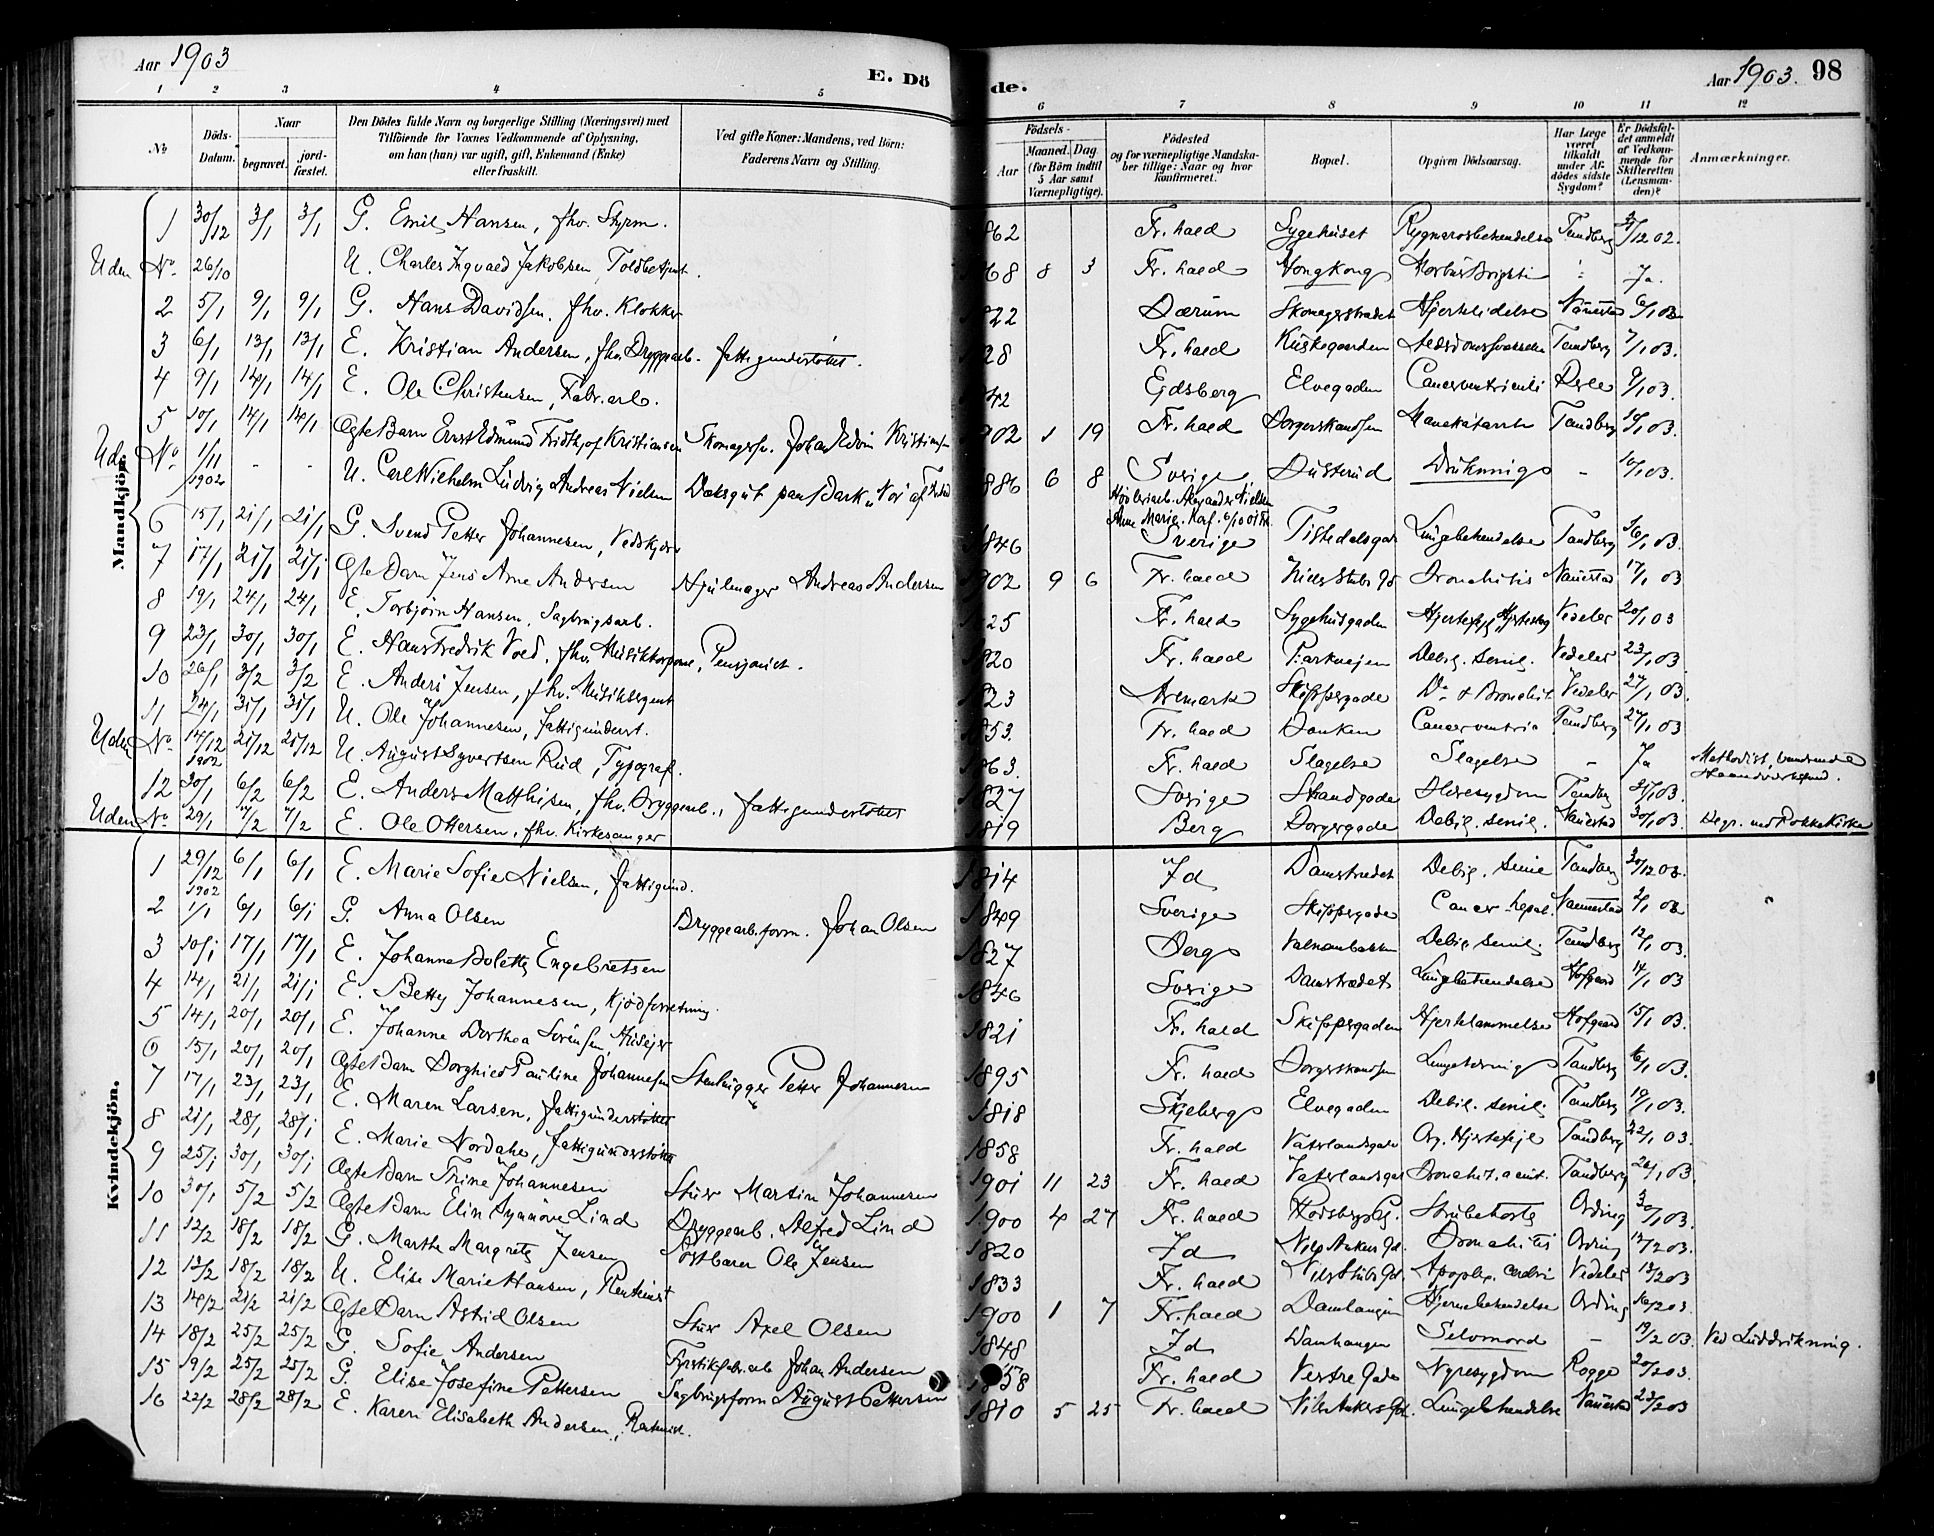 Aar 1903
E. Dö
de.
Aar 1903. 98
1 2 3 4 5 6 7 8 9 10 11 12
No
Döds-Datum.
Naar
begravet.
jordfæstet.
Den Dödes fulde Navn og borgerlige Stilling (Næringsvei) med
Tilföiende for Voxnes Vedkommende af Oplysning,
om han (hun) var ugift, gift, Enkemand (Enke)
eller fraskilt.
Ved gifte Koner: Mandens, ved Börn:
Faderens Navn og Stilling.
Födsels-
Aar
Maaned. Dag
(for Börn indtil
5 Aar samt
Værnepligtige).
Födested
og for værnepligtige Mandskaber tillige: Naar og hvor
konfirmeret.
Bopæl.
Opgiven Dödsaarsag.
Har Læge
været
tilkaldt
under Afdödes sidste
Sygdom?
Er Dödsfaldet anmeldt
af Vedkommende for
Skifteretten
(Lensmanden)?
Anmærkninger.
Mandkjön.
1 30/12 3/1 3/1 G. Emil Hansen, fhv. Styrm. 862 Fr.hald Sygehuset Tandberg 31/12 02.
Uden No. 26/10 U. Charles Ingvald Jakobsen Toldbetjent. 868 8 3 Fr.hald Hongkong Morbus Brigtii Ja.
2 5/1 9/1 9/1 G. Hans Davidsen, fhv. Klokker 822 Skomagerstrædet Hjertelidelse Nauestad 6/1 03
3 6/1 13/1 13/1 E. Kristian Andersen, fhv. Bryggearb. fattigunderstöttet. 828 Fr.hald Kuskegaarden Tandberg 7/1 03.
4 9/1 14/1 14/1 E. Ole Christensen, Fabr.arb. 842 Ejdsberg Elvegaden Cancer ventriculi 9/1 03.
5 10/1 14/1 14/1 Ægte Barn Ernst Edmund Fridthjof Kristiansen Skomagersv. Johan Edvin Kristiansen 902 1 19 Fr.hald Borgerskandsen Mavekatarrh Tandberg 10/1 03.
Uden No. 1/11 1902 - - U. Carl Wilhelm Ludvig Andreas Nielsen Dæksgut paa Bark „Vor" af Fr.stad 886 6 8 Sverige Dusterud Drukning - 10/1 03.
Høvleriarb. Alexander Nielsen
Anne Marie. Konf. 6/10 01 Fr.
6 15/1 21/1 21/1 G. Svend Petter Johannesen, Vedskjærer 1846 Sverige Tistedalsgade Lungebetændelse Tandberg 16/1 03.
7 17/1 21/1 21/1 Ægte Barn Jens Arne Andersen Hjulmager Andreas Andersen 1902 9 6 Fr.hald Niels Stubs Gd Bronchitis Nauestad 17/1 03
8 19/1 24/1 24/1 E. Torbjörn Hansen, Sagbrugsarb. 825 Fr.hald Sygehusgaden Vedeler 20/1 03
9 23/1 30/1 30/1 E. Hans Fredrik Vold, fhv. Musikkorporal, Pensjonist. 1820 Fr.hald Parkvejen Debil. senil. Vedeler 23/1 03.
10 26/1 3/2 3/2 E. Anders Jensen, fhv. Musiksergent 1823 Aremark Skippergade Do & Bronchit Vedeler 27/1 03.
11 24/1 31/1 31/1 U. Ole Johannesen, fattigunderst. 1853. Fr.hald Banken Cancer ventric Tandberg 27/1 03
Uden No. 14/12 1902 21/12 21/12 U. August Syvertsen Rud, Typograf. 1863. Fr.hald Slagelse Slagelse - Ja Methodist, vandrende Haandverksvend.
12 30/1 6/2 6/2 E. Anders Matthisen, fhv. Bryggearb., fattigunderstöttet 1827 Sverige Strandgade Blæresygdom Tandbg 31/1 03.
Uden No. 29/1 7/2 7/2 E. Ole Ottersen, fhv. Kirkesanger 1819 Berg Borgergade Debil. senil. Nauestad 30/1 03. Begr. ved Rokke Kirke
Kvindekjön.
1 29/12 1902 6/1 6/1 E. Marie Sofie Nielsen, fattigund. 1814 Id Damstrædet Debil. senil Tandberg 30/12 02.
2 1/1 6/1 6/1 G. Anna Olsen Bryggearb.form. Johan Olsen 1849 Sverige Skippergade Cancer hepat. Nauestad 2/1 03
3 10/1 17/1 17/1 E. Johanne Bolette Engebretsen 1827 Berg Debil. senil. Tandberg 12/1 03.
4 14/1 21/1 21/1 E. Betty Johannesen, Kjödforretning. 1846 Sverige Damstrædet Lungebetændelse Hofgaard 14/1 03
5 14/1 20/1 20/1 E. Johanne Dorthea Sörensen, Husejer 1821 Fr.hald Skippergaden Hjertelammelse Hofgaard 15/1 03.
6 15/1 20/1 20/1 Ægte Barn Borghild Pauline Johannesen Stenhugger Petter Johannesen 1895 Fr.hald Borgerskandsen Lungetæring Tandberg 16/1 03.
7 17/1 23/1 23/1 E. Maren Larsen, fattigunderstöttet 1818 Skjeberg Elvegaden Debil. senil. Tandberg 19/1 03.
8 21/1 28/1 28/1 E. Marie Nordahl, fattigunderstöttet 1858 Fr.hald Vaterlandsgade Org. Hjertefejl Tandberg 22/1 03.
9 25/1 30/1 30/1 Ægte Barn Trine Johannesen Stuer Martin Johannesen 1901 11 23 Fr.hald Vaterlandsgade Bronchit. acut. Tandberg 26/1 03.
10 30/1 5/2 5/2 Ægte Barn Elin Synnöve Lind Bryggearb. Alfred Lind 1900 4 27 Fr.hald Rödsberg G. Strubehoste Ording 30/1 03.
11 12/2 18/2 18/2 G. Marthe Margrete Jensen Postbærer Ole Jensen 1820 Id Nils Ankers Gd. Bronchitis Ording 12/2 03.
12 12/2 18/2 18/2 U. Elise Marie Hansen, Rentenist 1833 Fr.hald Nils Stubs Gd. Apoplex. cerebri Vedeler 13/2 03
13 14/2 21/2 21/2 Ægte Barn Astrid Olsen Stuer Axel Olsen 1900 1 7 Fr.hald Damhaugen Hjernebetændelse Ording 16/2 03.
14 18/2 25/2 25/2 G. Sofie Andersen Fyrstikfabr.arb Johan Andersen 1848 Id Damhaugen Selvmord - 19/2 03 Ved Luddrikning.
15 19/2 25/2 25/2 G. Elise Josefine Pettersen Sagbrugsform August Pettersen 1858 Fr.hald Vestre Gade Nyresygdom Rogge 20/2 03
16 22/2 28/2 28/2 E. Karen Elisabeth Andersen, Rentenist. 1810 5 25 Fr.hald Nils Ankers Gd. Lungebetændelse Nauestad 23/2 03